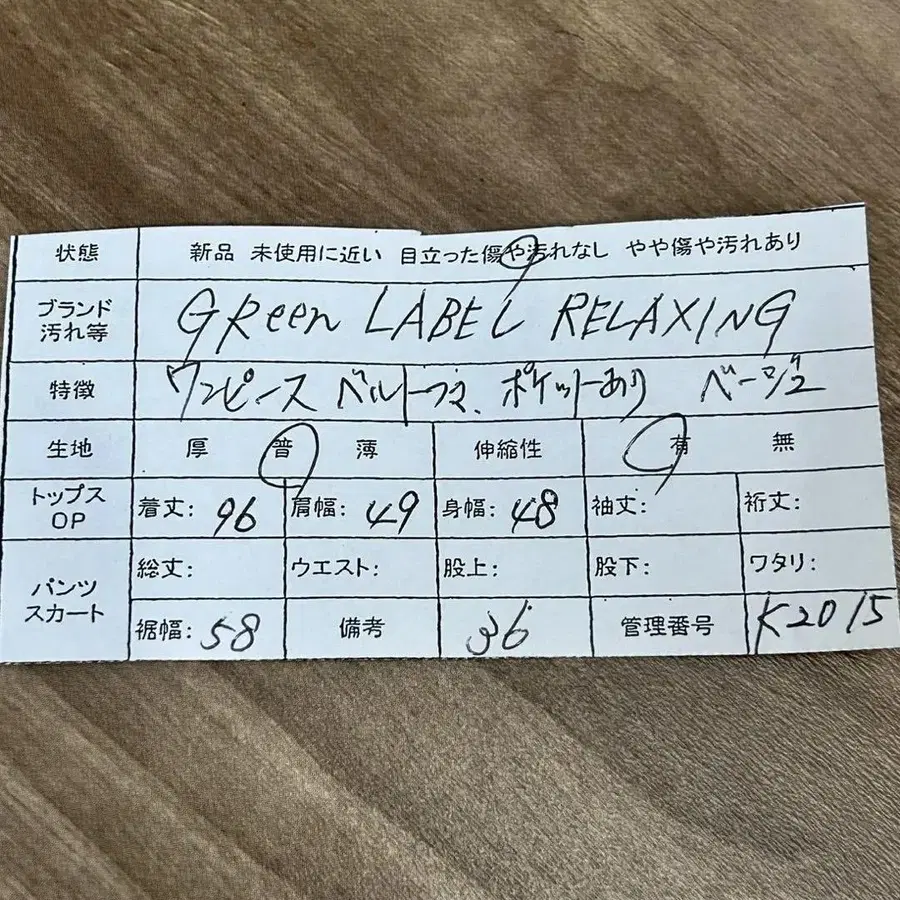 状態 新品 未使用に近い 目立った傷や汚れなし やや傷や汚れあり
ブランド
汚れ等 GReen LABEL RELAXING
特徴 ワンピース ベルトつき、ポケットあり ベージュ
生地 厚 普 薄 伸縮性 有 無
トップス
OP 着丈: 96 肩幅: 49 身幅: 48 袖丈: 裄丈:
パンツ
スカート 総丈: ウエスト: 股上: 股下: ワタリ:
裾幅: 58 備考 36 管理番号 K2015